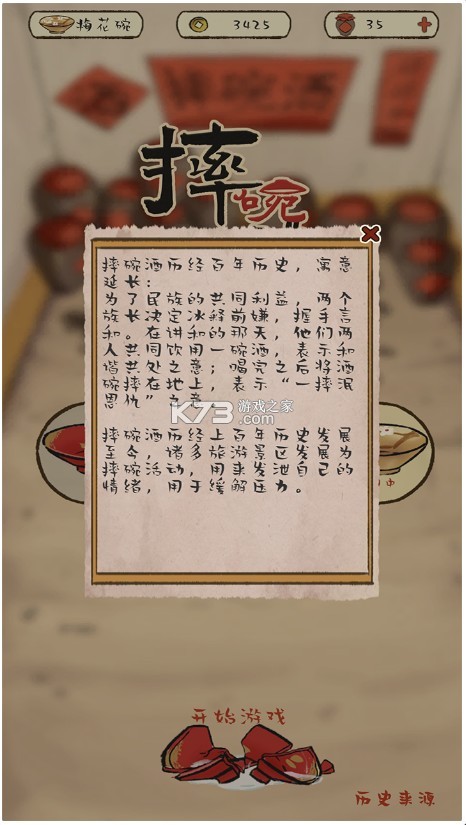 梅花碗
3425
35
摔碗酒
摔碗
摔碗酒历经百年历史，寓意
延长：
为了民族的共同利益，两个
族长决定冰释前嫌，握手言
和。在讲和的那天，他们两
人共同饮用一碗酒，表示和
谐共处之意；喝完之后将酒
碗摔在地上，表示“一摔泯
恩仇”之意。
摔碗酒，历经上百年历史发展
至今，诸多旅游景区发展为
摔碗活动，用来发泄自己的
情绪，用于缓解压力。
K73 游戏之家
.com
开始游戏
历史来源